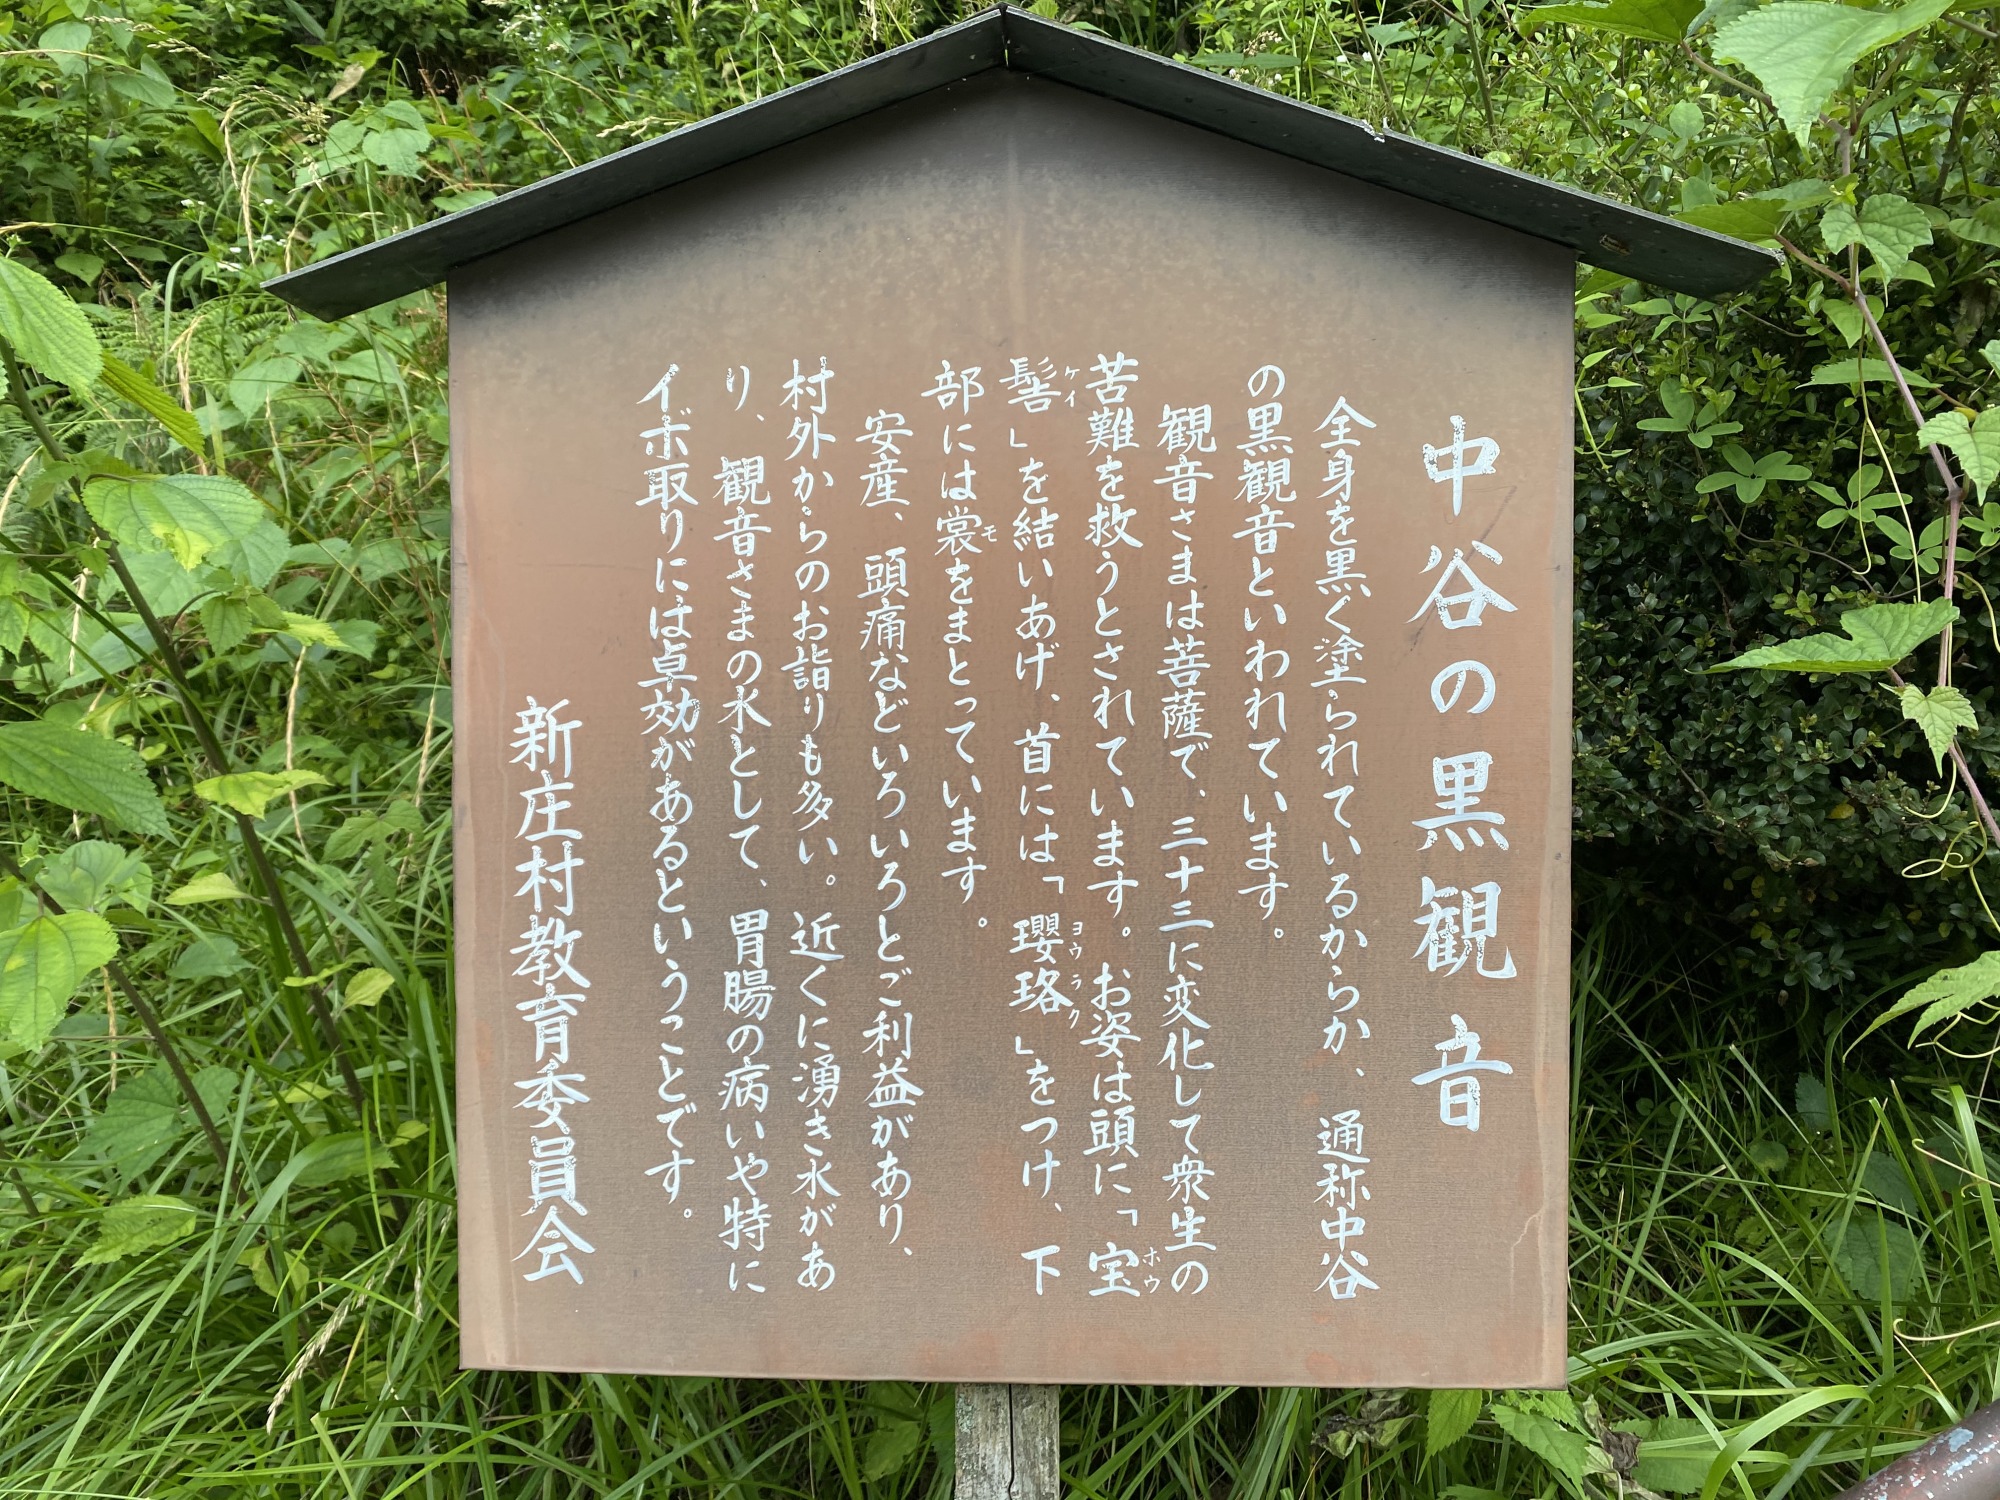 中谷の黒観音
全身を黒く塗られているからか、通称中谷
の黒観音といわれています。
観音さまは菩薩で、三十三に変化して衆生の
苦難を救うとされています。お姿は頭に「宝
髻」を結いあげ、首には「瓔珞」をつけ、下
部には裳をまとっています。
安産、頭痛などいろいろとご利益があり、
村外からのお詣りも多い。近くに湧き水があ
り、観音さまの水として、胃腸の病いや特に
イボ取りには卓効があるということです。
新庄村教育委員会
ホウ
ケイ
ヨウラク
モ